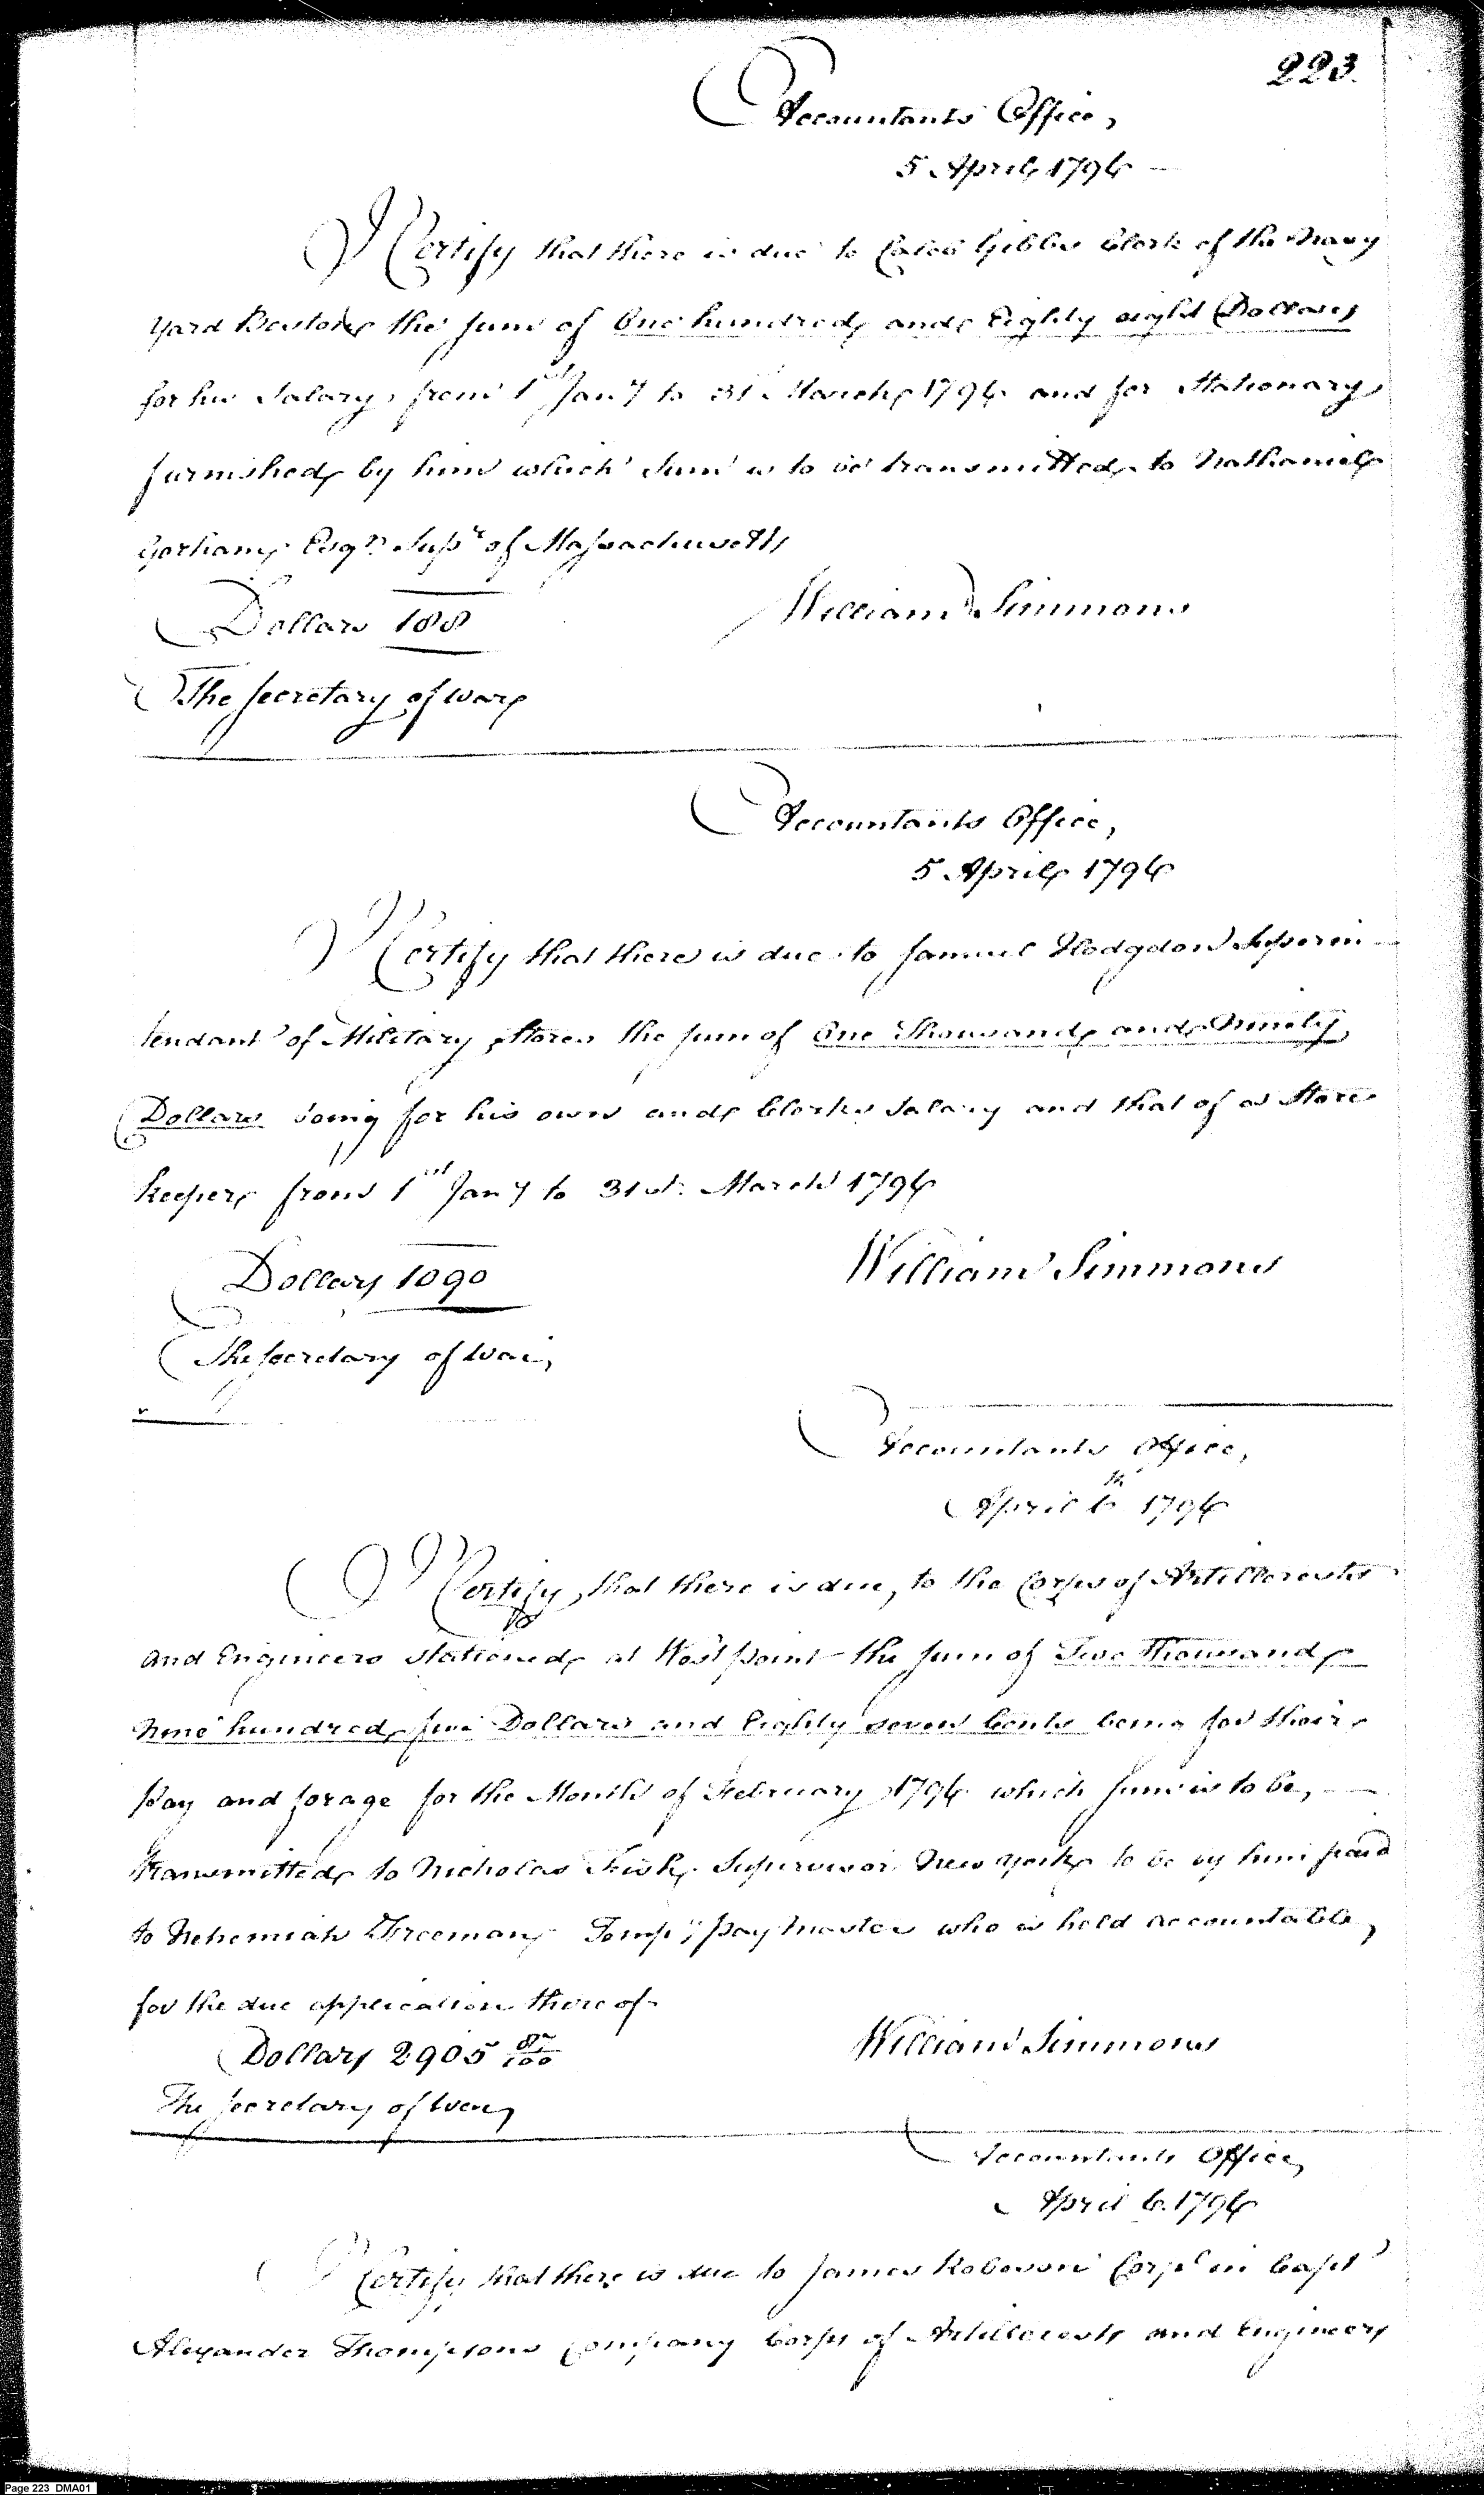 223.
Accountants Office,
5 April 1796
I Certify that there is due to Caleb Gibbs Clerk of the Navy
Yard Boston the sum of One hundred and Eighty eight Dollars
for his Salary, from 1st Jany to 31 March 1796 and for Stationary
furnished by him which Sum is to be transmitted to Nathaniel
Gorham Esqr. Supr of Massachusetts
Dollars 188
William Simmons
The Secretary of War
Accountants Office,
5 April 1796
I Certify that there is due to Samuel Hodgdon Superin-
tendant of Military Stores the sum of One Thousand and Ninety
Dollars being for his own and Clerks Salary and that of a Store
keeper from 1st Jany to 31st March 1796
Dollars 1090
William Simmons
The Secretary of War,
Accountants Office,
April 6th 1796
I Certify, that there is due, to the Corps of Artillerests
and Engineers stationed at West point the sum of Two Thousand
Nine hundred five Dollars and Eighty seven Cents being for their
pay and forage for the Month of February 1796 which sum is to be,
transmitted to Nicholas Fish Supervisor New York to be by him paid
to Nehemiah Freeman Tempy paymaster who is held accountable,
for the due application thereof
Dollars 2905 87/100
William Simmons
The Secretary of War,
Accountants Office,
April 6. 1796
I Certify that there is due to James Robeson Corpl in Capt
Alexander Thompsons Company Corps of Artillerests and Engineers
Page 223 DMA01